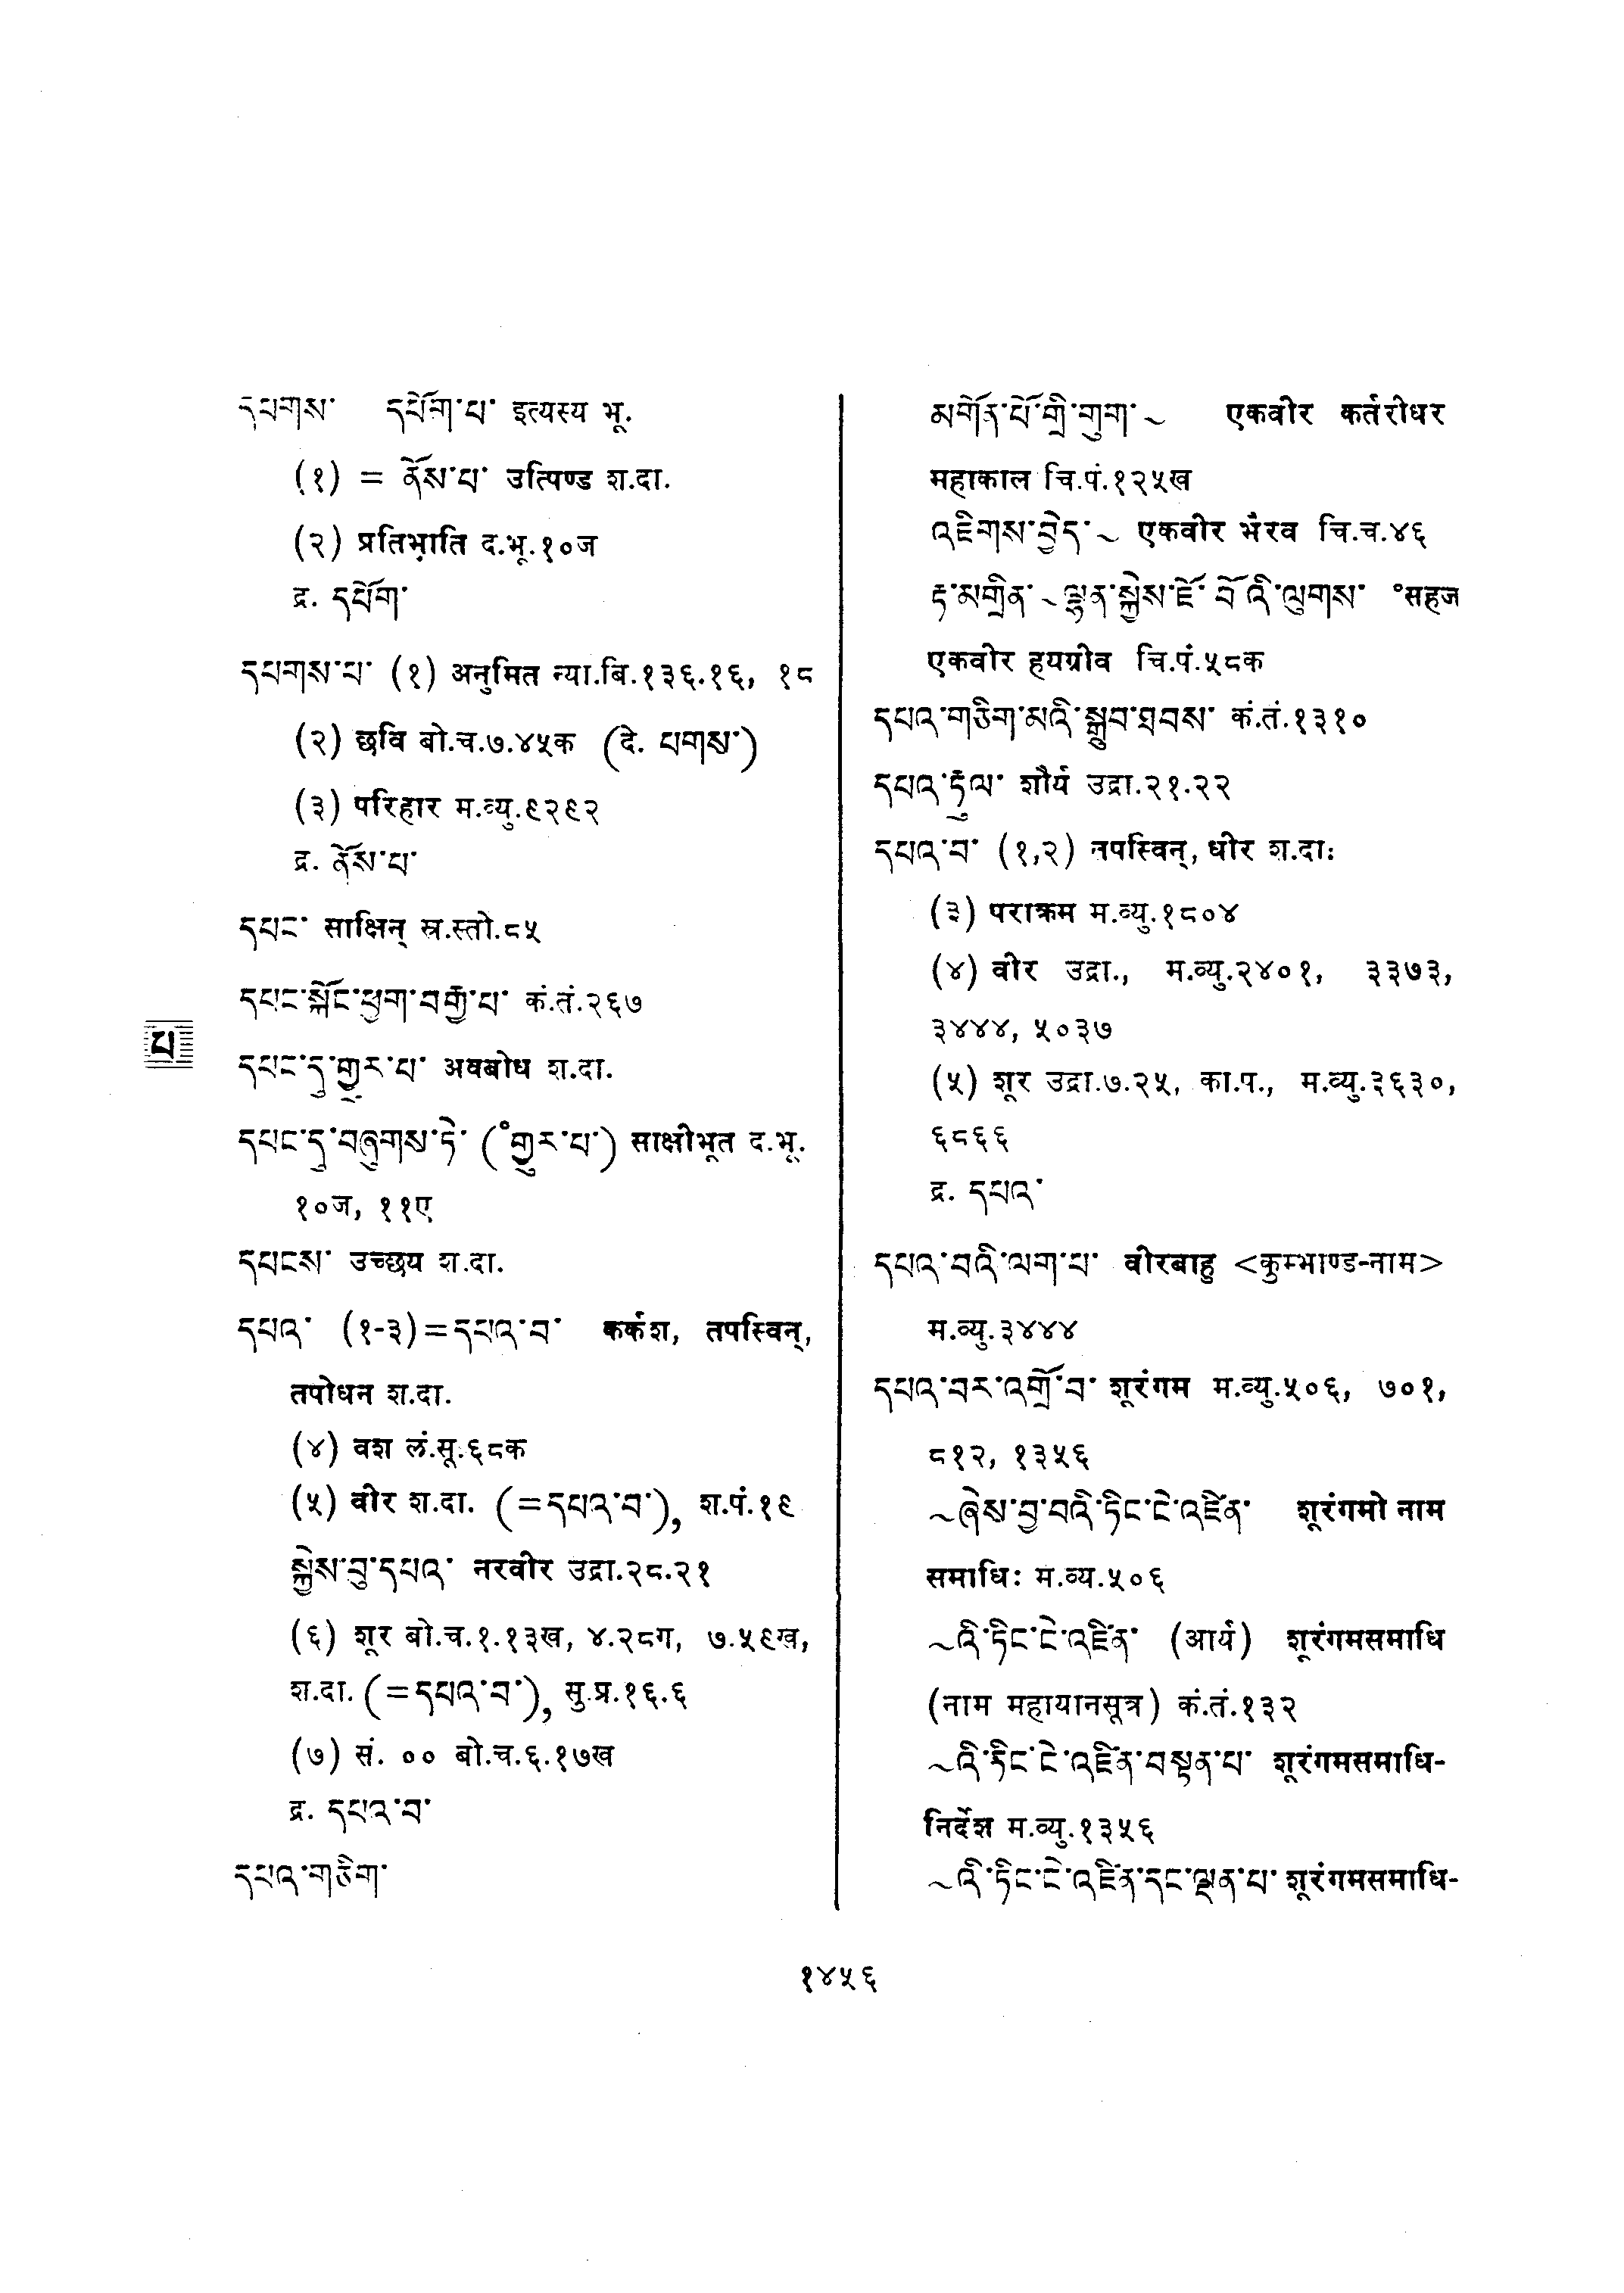 དཔགས་ དཔོག་པ་ इत्यस्य भू.
(१) = ངོས་པ་ उत्पिण्ड श.दा.
(२) प्रतिभाति द.भू.१०ज
द्र. དཔོག་
དཔགས་པ་ (१) अनुमित न्या.बि.१३६.१६, १८
(२) छवि बो.च.७.४५क (दे. པགས་)
(३) परिहार म.व्यु.९२९२
द्र. ངོས་པ་
དཔང་ साक्षिन् स्र.स्तो.८५
དཔང་སྐོང་ཕྱག་བརྒྱ་པ་ कं.तं.२६७
པ
དཔང་དུ་གྱུར་པ་ अवबोध श.दा.
དཔང་དུ་བཞུགས་ཏེ་ (°གྱུར་པ་) साक्षीभूत द.भू.
१०ज, ११ए
དཔངས་ उच्छ्रय श.दा.
དཔའ་ (१-३)=དཔའ་བ་ कर्कश, तपस्विन्,
तपोधन श.दा.
(४) वश लं.सू.६८क
(५) वीर श.दा. (=དཔའ་བ་), श.पं.१९
སྐྱེས་བུ་དཔའ་ नरवीर उद्रा.२८.२१
(६) शूर बो.च.१.१३ख, ४.२८ग, ७.५९ख,
श.दा. (=དཔའ་བ་), सु.प्र.१६.६
(७) सं. ०० बो.च.६.१७ख
द्र. དཔའ་བ་
དཔའ་གཅིག་
མགོན་པོ་གྲི་གུག་~ एकवीर कर्तरीधर
महाकाल चि.पं.१२५ख
འཇིགས་བྱེད་~ एकवीर भैरव चि.च.४६
རྟ་མགྲིན་~ལྷན་སྐྱེས་ཇོ་བོའི་ལུགས་ °सहज
एकवीर हयग्रीव चि.पं.५८क
དཔའ་གཅིག་མའི་སྒྲུབ་ཐབས་ कं.तं.१३१०
དཔའ་རྟུལ་ शौर्य उद्रा.२१.२२
དཔའ་བ་ (१,२) तपस्विन्, धीर श.दा:
(३) पराक्रम म.व्यु.१८०४
(४) वीर उद्रा., म.व्यु.२४०१, ३३७३,
३४४४, ५०३७
(५) शूर उद्रा.७.२५, का.प., म.व्यु.३६३०,
६८६६
द्र. དཔའ་
དཔའ་བའི་ལག་པ་ वीरबाहु <कुम्भाण्ड-नाम>
म.व्यु.३४४४
དཔའ་བར་འགྲོ་བ་ शूरंगम म.व्यु.५०६, ७०१,
८१२, १३५६
~ཞེས་བྱ་བའི་ཏིང་ངེ་འཛིན་ शूरंगमो नाम
समाधिः म.व्य.५०६
~འི་ཏིང་ངེ་འཛིན་ (आर्य) शूरंगमसमाधि
(नाम महायानसूत्र) कं.तं.१३२
~འི་ཏིང་ངེ་འཛིན་བསྟན་པ་ शूरंगमसमाधि-
निर्देश म.व्यु.१३५६
~འི་ཏིང་ངེ་འཛིན་དང་ལྡན་པ་ शूरंगमसमाधि-
१४५६